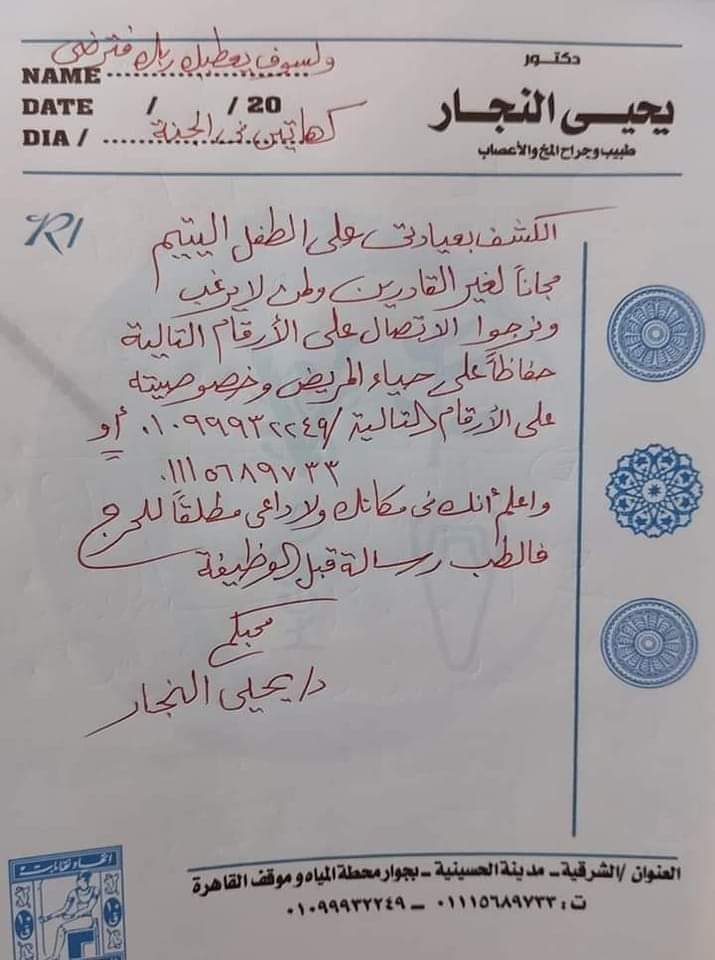 ولسوف يعطيك ربك فترضى
NAME
DATE / / 20
DIA /
كهاتين فى الجنة
دكتور
يحيى النجار
طبيب وجراح المخ والأعصاب
R/
الكشف بعيادتى على الطفل اليتيم
مجاناً لغير القادرين ولمن لا يرغب
ونرجوا الاتصال على الأرقام التالية
حفاظاً على حياء المريض وخصوصيته
على الأرقام التالية / ٠١٠٩٩٩٣٢٢٤٩ أو
٠١١١٥٦٨٩٧٣٣
واعلم أنك فى مكانك ولا داعى مطلقاً للحرج
فالطب رسالة قبل الوظيفة
محبكم
د/ يحيى النجار
العنوان / الشرقية - مدينة الحسينية - بجوار محطة المياه وموقف القاهرة
ت : ٠١١١٥٦٨٩٧٣٣ - ٠١٠٩٩٩٣٢٢٤٩